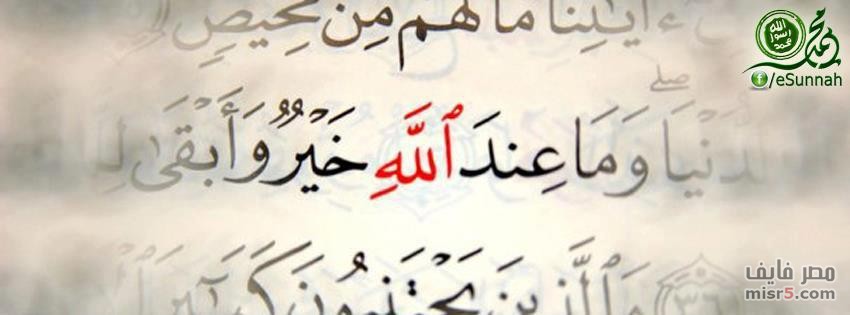 ءَايَٰتِنَا مَا لَهُم مِّن مَّحِيصٍ
ٱلدُّنْيَا ۖ وَمَا عِندَ ٱللَّهِ خَيْرٌ وَأَبْقَىٰ
٣٦ وَٱلَّذِينَ يَجْتَنِبُونَ كَبَٰٓئِرَ
محمد
الله
رسول
محمد
f/eSunnah
مصر فايف
misr5.com